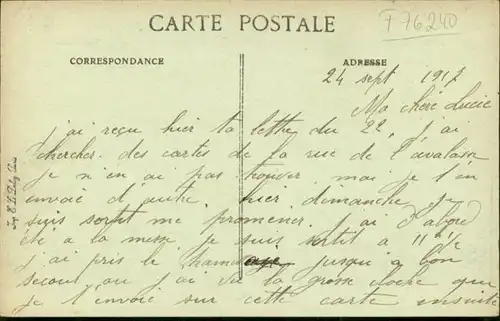 CARTE POSTALE
F 76240
CORRESPONDANCE
ADRESSE
24 sept 1917
Ma chère Lucie
j'ai reçu hier ta lettre du 22, j'ai
chercher des cartes de la rue de l'avalasse
je n'en ai pas trouver mai je t'en
envoie d'autre. hier dimanche je
suis sortit me promener. j'ai d'abord
été a la messe, je suis sortit a 11h1/2
j'ai pris le jusqu'a bon
secour ou j'ai vu la grosse cloche que
je t'envoie sur cette carte ensuite
Imp. E. L. D.